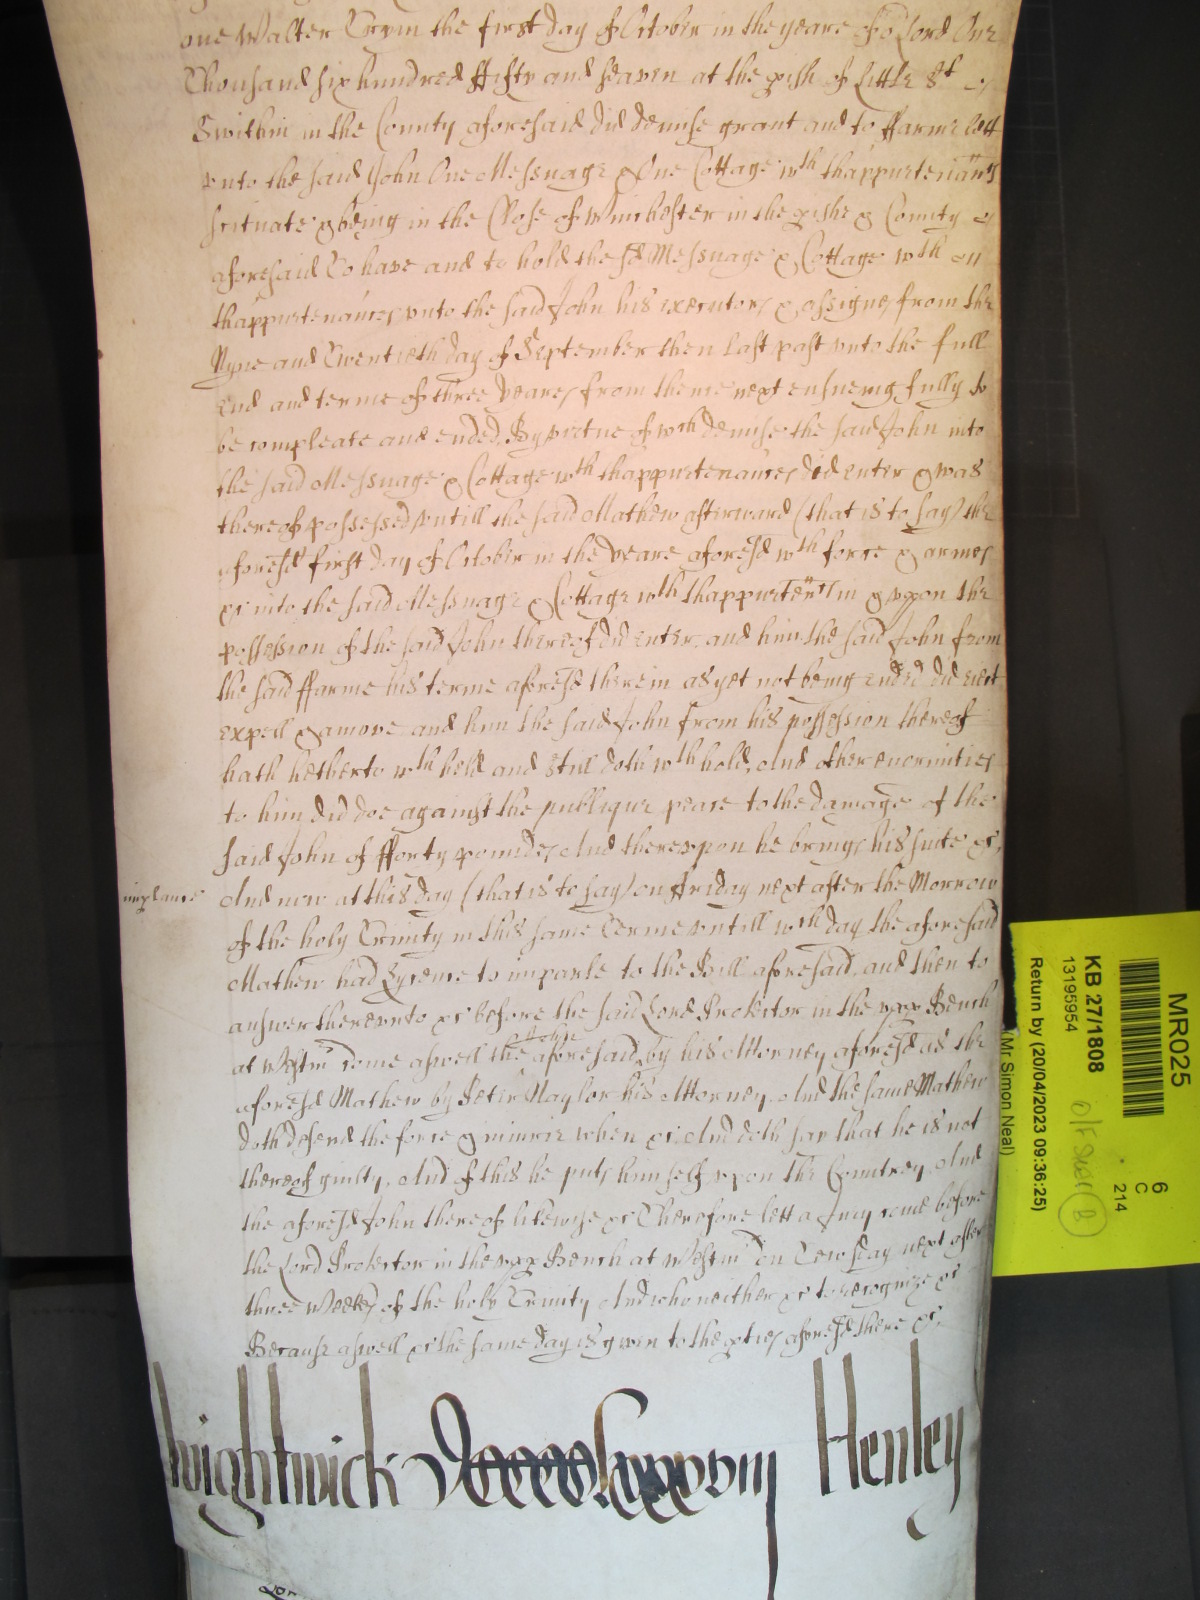 one Walter Tryin the first day of October in the yeare of or Lord One
Thousand six hundred ffifty and seaven at the pish of Little St
Swithin in the County aforesaid did demise grant and to ffarme lett
vnto the said John One Messuage & One Cottage wth thappurtenancs
scituate & being in the Close of Winchester in the pishe & County
aforesaid To have and to hold the sd Messuage & Cottage wth
thappurtenances vnto the said John his executors & assignes from the
Nyne and Twentieth day of September then last past vnto the full
end and terme of three yeares from thence next ensueing fully to
be compleate and ended. By vertue of wch demise the said John into
the said Messuage & Cottage wth thappurtenances did enter & was
thereof possessed vntill the said Mathew afterward (that is to say) the
aforesd first day of October in the yeare aforesd wth force & armes
&c into the said Messuage & Cottage wth thappurten'ncs in & vpon the
possession of the said John thereof did enter, and him the said John from
the said ffarme his terme aforesd therein as yet not being ended did eiect
expell & amove and him the said John from his possession thereof
hath hetherto wth held and still doth wth hold, And other enormities
to him did doe against the publique peace to the damage of the
said John of fforty pounds, And therevpon he brings his suite &c,
imparlance And now at this day (that is to say) on ffriday next after the Morrow
of the holy Trinity in this same Terme vntill wch day the aforesaid
Mathew had Lycence to imparle to the Bill aforesaid, and then to
answer therevnto &c before the said Lord Protector in the vpp Bench
at Westm' come aswell the aforesaid John by his Attorney aforesd as the
aforesd Mathew by Peter Naylor his Attorney, And the same Mathew
doth defend the force & iniurie when &c And doth say that he is not
thereof guilty, And of this he puts himself vpon the Countrey, And
the aforesd John thereof likewise &c Therefore lett a Jury come before
the Lord Protector in the vpp Bench at Westm' on Tewsday next after
three Weekes of the holy Trinity And who neither &c to recognize &c
Because aswell &c the same day is given to the pties aforesd there &c,
Wightwick Henley
MR025
KB 27/1808
13195954
Return by (20/04/2023 09:36:25)
(Mr Simon Neal)
6
C
214